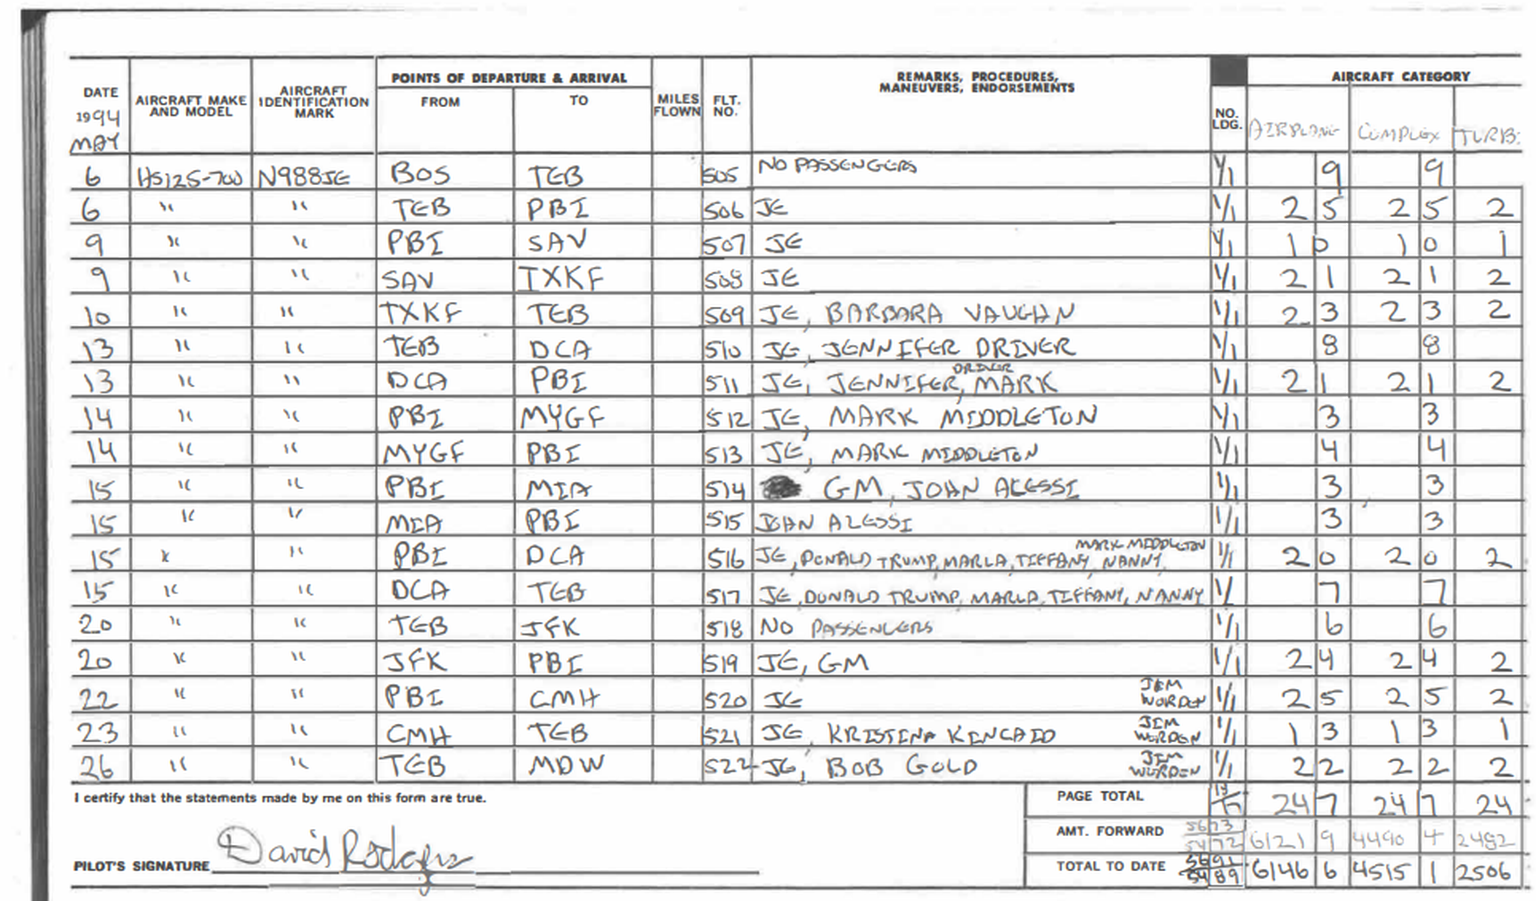 DATE AIRCRAFT MAKE AND MODEL AIRCRAFT IDENTIFICATION MARK POINTS OF DEPARTURE & ARRIVAL MILES FLOWN FLT. NO. REMARKS, PROCEDURES, MANEUVERS, ENDORSEMENTS NO. LDG. AIRCRAFT CATEGORY
1994 MAY FROM TO AIRPLANE COMPLEX TURB.
6 HS125-700 N988JE BOS TEB 505 NO PASSENGERS 1/1 9 9
6 " " TEB PBI 506 JE 1/1 2 5 2 5 2
9 " " PBI SAV 507 JE 1/1 1 0 1 0 1
9 " " SAV TXKF 508 JE 1/1 2 1 2 1 2
10 " " TXKF TEB 509 JE, BARBARA VAUGHN 1/1 2 3 2 3 2
13 " " TEB DCA 510 JE, JENNIFER DRIVER 1/1 8 8
13 " " DCA PBI 511 JE, JENNIFER DRIVER, MARK 1/1 2 1 2 1 2
14 " " PBI MYGF 512 JE, MARK MIDDLETON 1/1 3 3
14 " " MYGF PBI 513 JE, MARK MIDDLETON 1/1 4 4
15 " " PBI MIA 514 GM, JOHN ALESSI 1/1 3 3
15 " " MIA PBI 515 JOHN ALESSI 1/1 3 3
15 " " PBI DCA 516 JE, DONALD TRUMP, MARLA, TIFFANY, NANNY, MARK MIDDLETON 1/1 2 0 2 0 2
15 " " DCA TEB 517 JE, DONALD TRUMP, MARLA, TIFFANY, NANNY 1/ 7 7
20 " " TEB JFK 518 NO PASSENGERS 1/1 6 6
20 " " JFK PBI 519 JE, GM 1/1 2 4 2 4 2
22 " " PBI CMH 520 JE JIM WORDEN 1/1 2 5 2 5 2
23 " " CMH TEB 521 JE, KRISTINA KINCAID JIM WORDEN 1/1 1 3 1 3 1
26 " " TEB MDW 522 JE, BOB GOLD JIM WORDEN 1/1 2 2 2 2 2
I certify that the statements made by me on this form are true.
PAGE TOTAL 24 7 24 7 24
AMT. FORWARD 5673 5472 6121 9 4490 4 2482
PILOT'S SIGNATURE David Rodgers
TOTAL TO DATE 5691 5489 6146 6 4515 1 2506